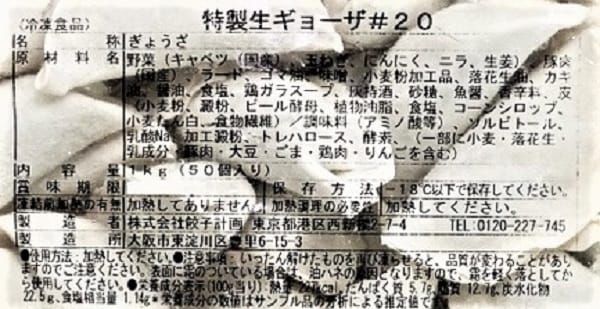 (冷凍食品) 特製生ギョーザ#20
名 称 ぎょうざ
原 材 料 名 野菜(キャベツ(国産)、玉ねぎ、にんにく、ニラ、生姜)、豚肉
(国産)、ラード、ゴマ油、味噌、小麦粉加工品、落花生油、カキ
油、醤油、食塩、鶏ガラスープ、灰持酒、砂糖、魚醤、香辛料、皮
(小麦粉、澱粉、ビール酵母、植物油脂、食塩、コーンシロップ、
小麦たん白、食物繊維)/調味料(アミノ酸等)、ソルビトール、
乳酸Na、加工澱粉、トレハロース、酵素、(一部に小麦・落花生・
乳成分・豚肉・大豆・ごま・鶏肉・りんごを含む)
内 容 量 1kg(50個入り)
賞 味 期 限 保 存 方 法 -18℃以下で保存してください。
凍結前加熱の有無 加熱してありません。 加熱調理の必要性 加熱してください。
製 造 者 株式会社餃子計画 東京都港区西新橋2-7-4 TEL:0120-227-745
製 造 所 大阪市東淀川区豊里6-15-3
●使用方法:加熱してください。●注意事項:いったん解けたものを再び凍らせると、品質が変わることがあり
ますのでご注意ください。表面に霜のついている場合は、油ハネの原因となりますので、霜を軽く落としてか
ら使用してください。●栄養成分表示(100g当り):熱量 227kcal、たんぱく質 5.7g、脂質 12.7g、炭水化物
22.5g、食塩相当量 1.14g*栄養成分の数値はサンプル品の分析による推定値です。